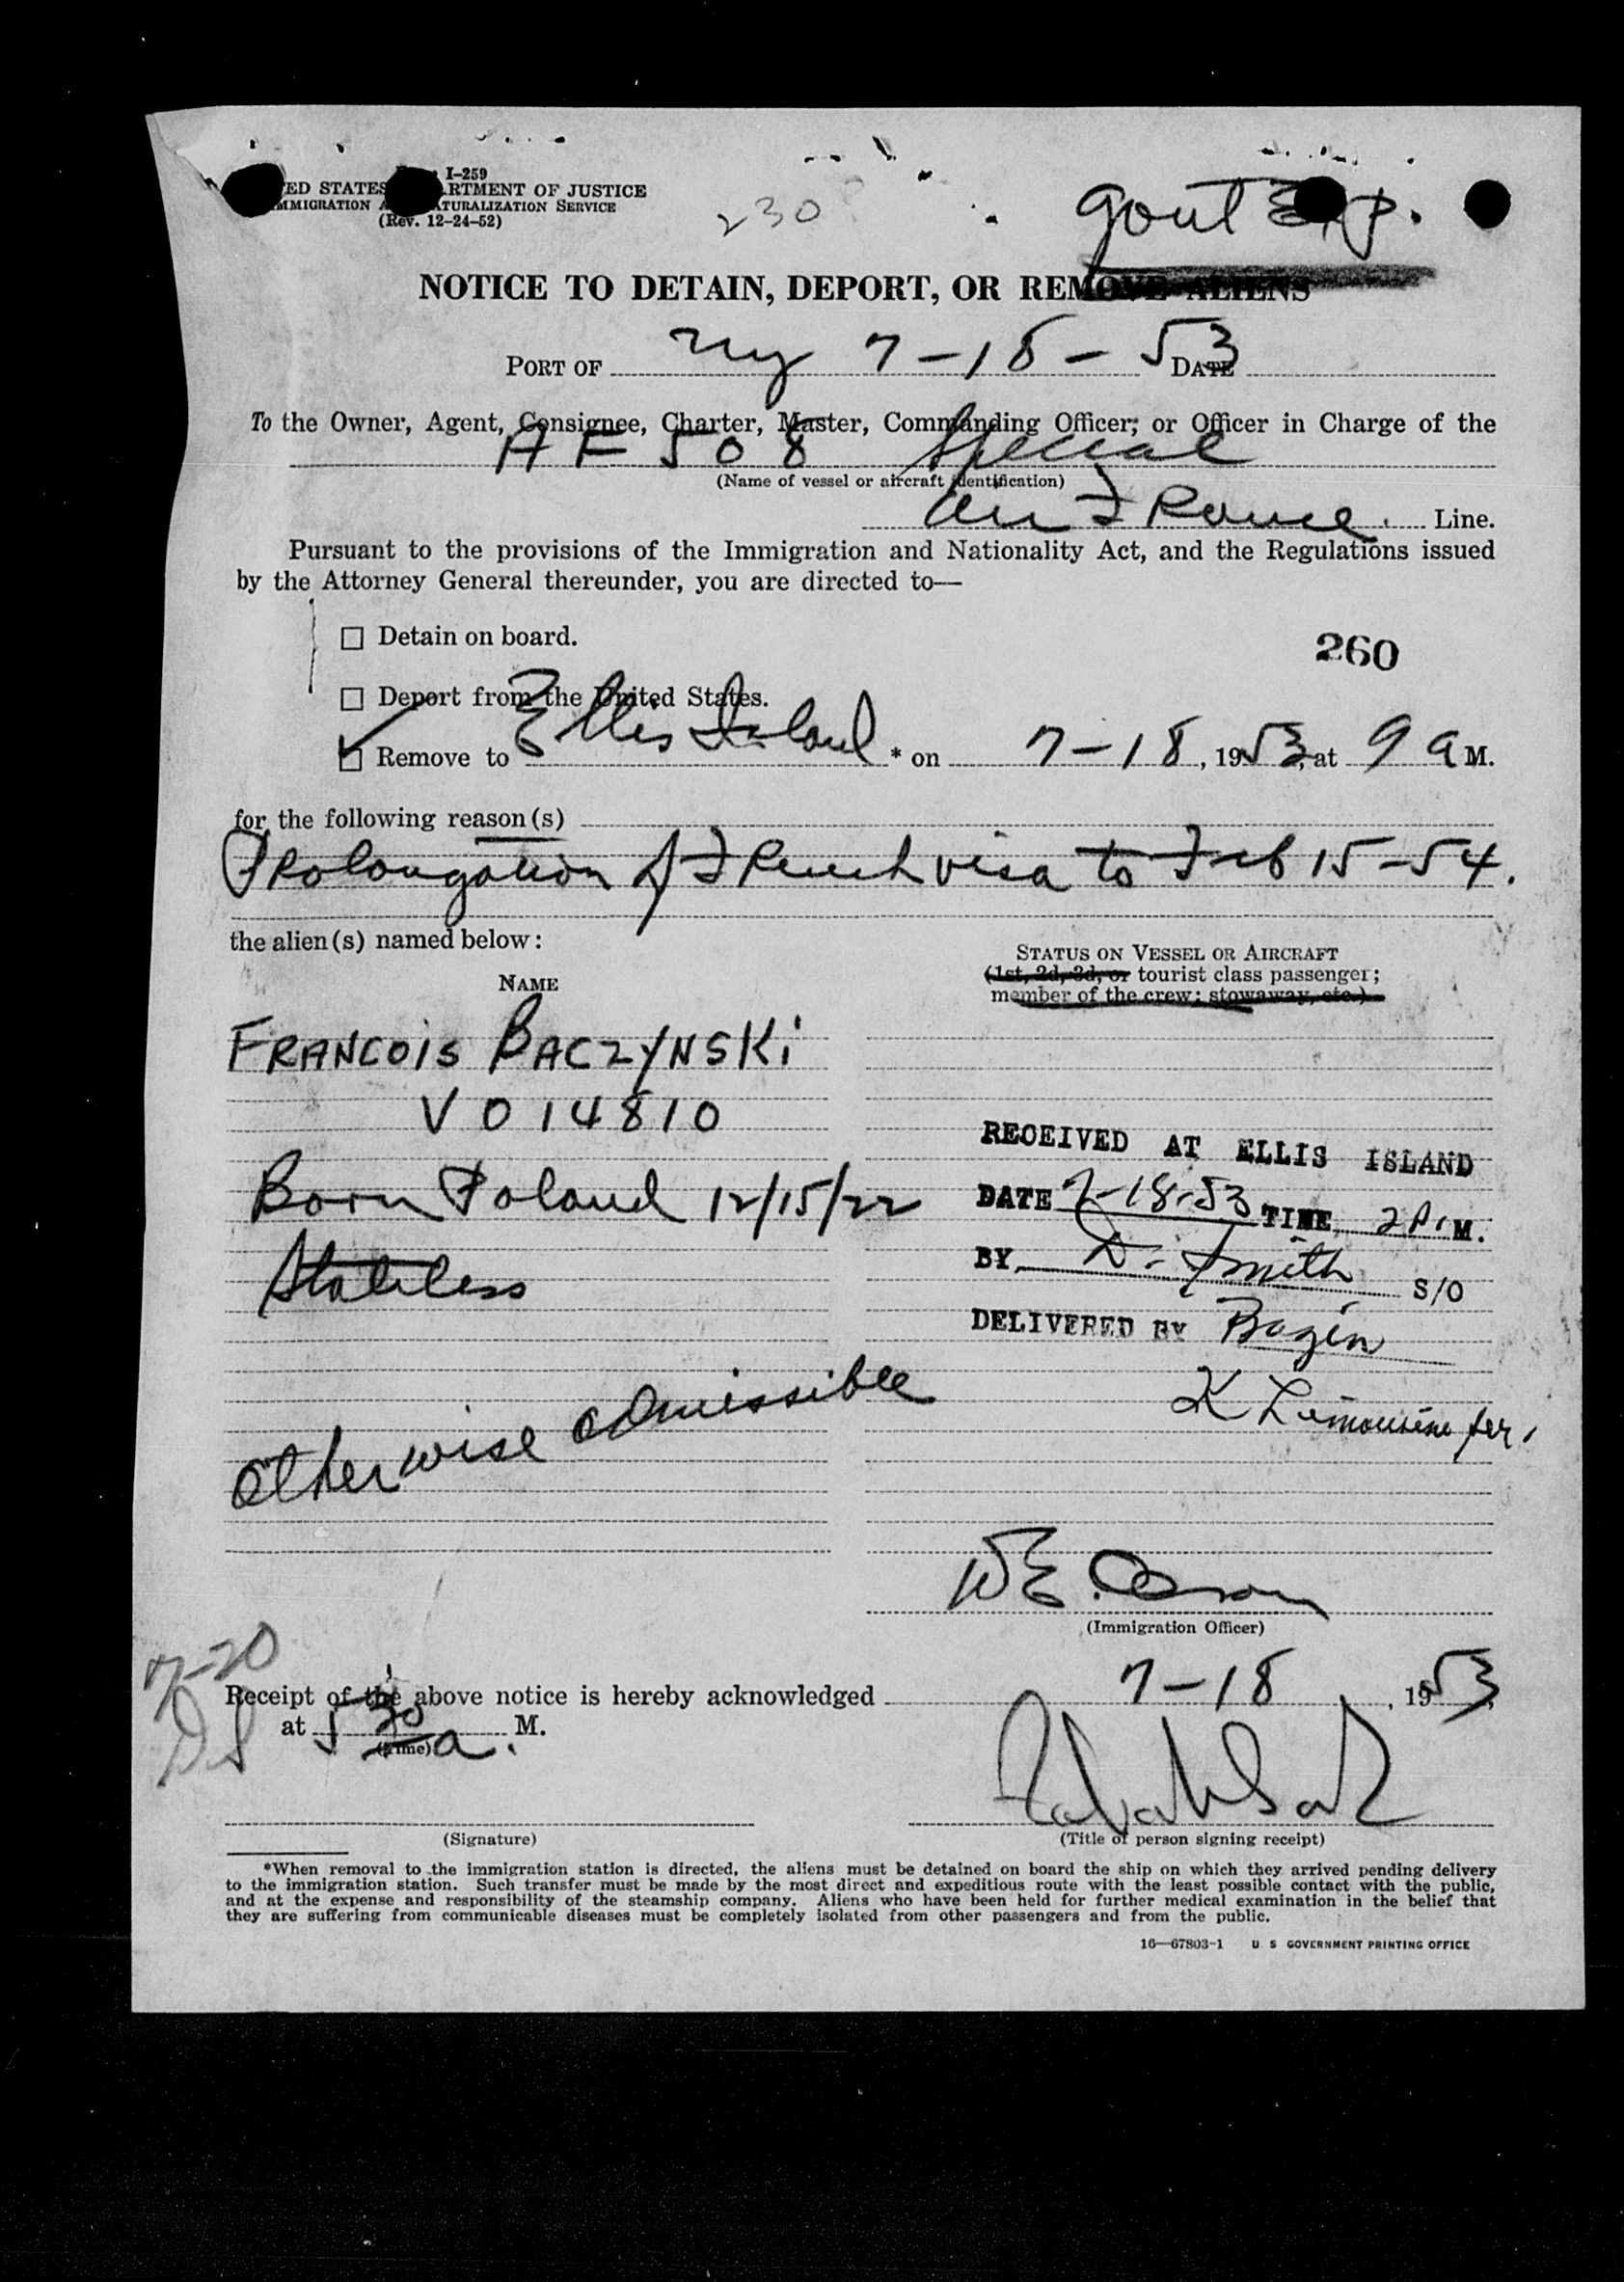 I-259
ED STATES ARTMENT OF JUSTICE
MMIGRATION A ATURALIZATION SERVICE
(Rev. 12-24-52)
230
Govt Exp.
NOTICE TO DETAIN, DEPORT, OR REMOVE ALIENS
PORT OF NY 7-18-53 DATE
To the Owner, Agent, Consignee, Charter, Master, Commanding Officer, or Officer in Charge of the
AF 508 Special
(Name of vessel or aircraft identification)
Air France. Line.
Pursuant to the provisions of the Immigration and Nationality Act, and the Regulations issued
by the Attorney General thereunder, you are directed to—
Detain on board.
260
Deport from the United States.
Remove to Ellis Island * on 7-18, 1953, at 9 a M.
for the following reason(s)
Prolongation of French visa to Feb 15-54.
the alien(s) named below:
STATUS ON VESSEL OR AIRCRAFT
(1st, 2d, 3d, or tourist class passenger;
member of the crew; stowaway, etc.)
NAME
FRANCOIS BACZYNSKI
V 014810
Born Poland 12/15/22
Stateless
Otherwise admissible
RECEIVED AT ELLIS ISLAND
DATE 7-18-53 TIME 2 P.M.
BY D. Smith S/O
DELIVERED BY Bazin
K Limousine ser.
W E.
(Immigration Officer)
7-20
DS
Receipt of the above notice is hereby acknowledged 7-18, 1953,
at 5 30 a. M.
(Time)
(Signature)
(Title of person signing receipt)
*When removal to the immigration station is directed, the aliens must be detained on board the ship on which they arrived pending delivery
to the immigration station. Such transfer must be made by the most direct and expeditious route with the least possible contact with the public,
and at the expense and responsibility of the steamship company. Aliens who have been held for further medical examination in the belief that
they are suffering from communicable diseases must be completely isolated from other passengers and from the public.
16—67803-1 U S GOVERNMENT PRINTING OFFICE